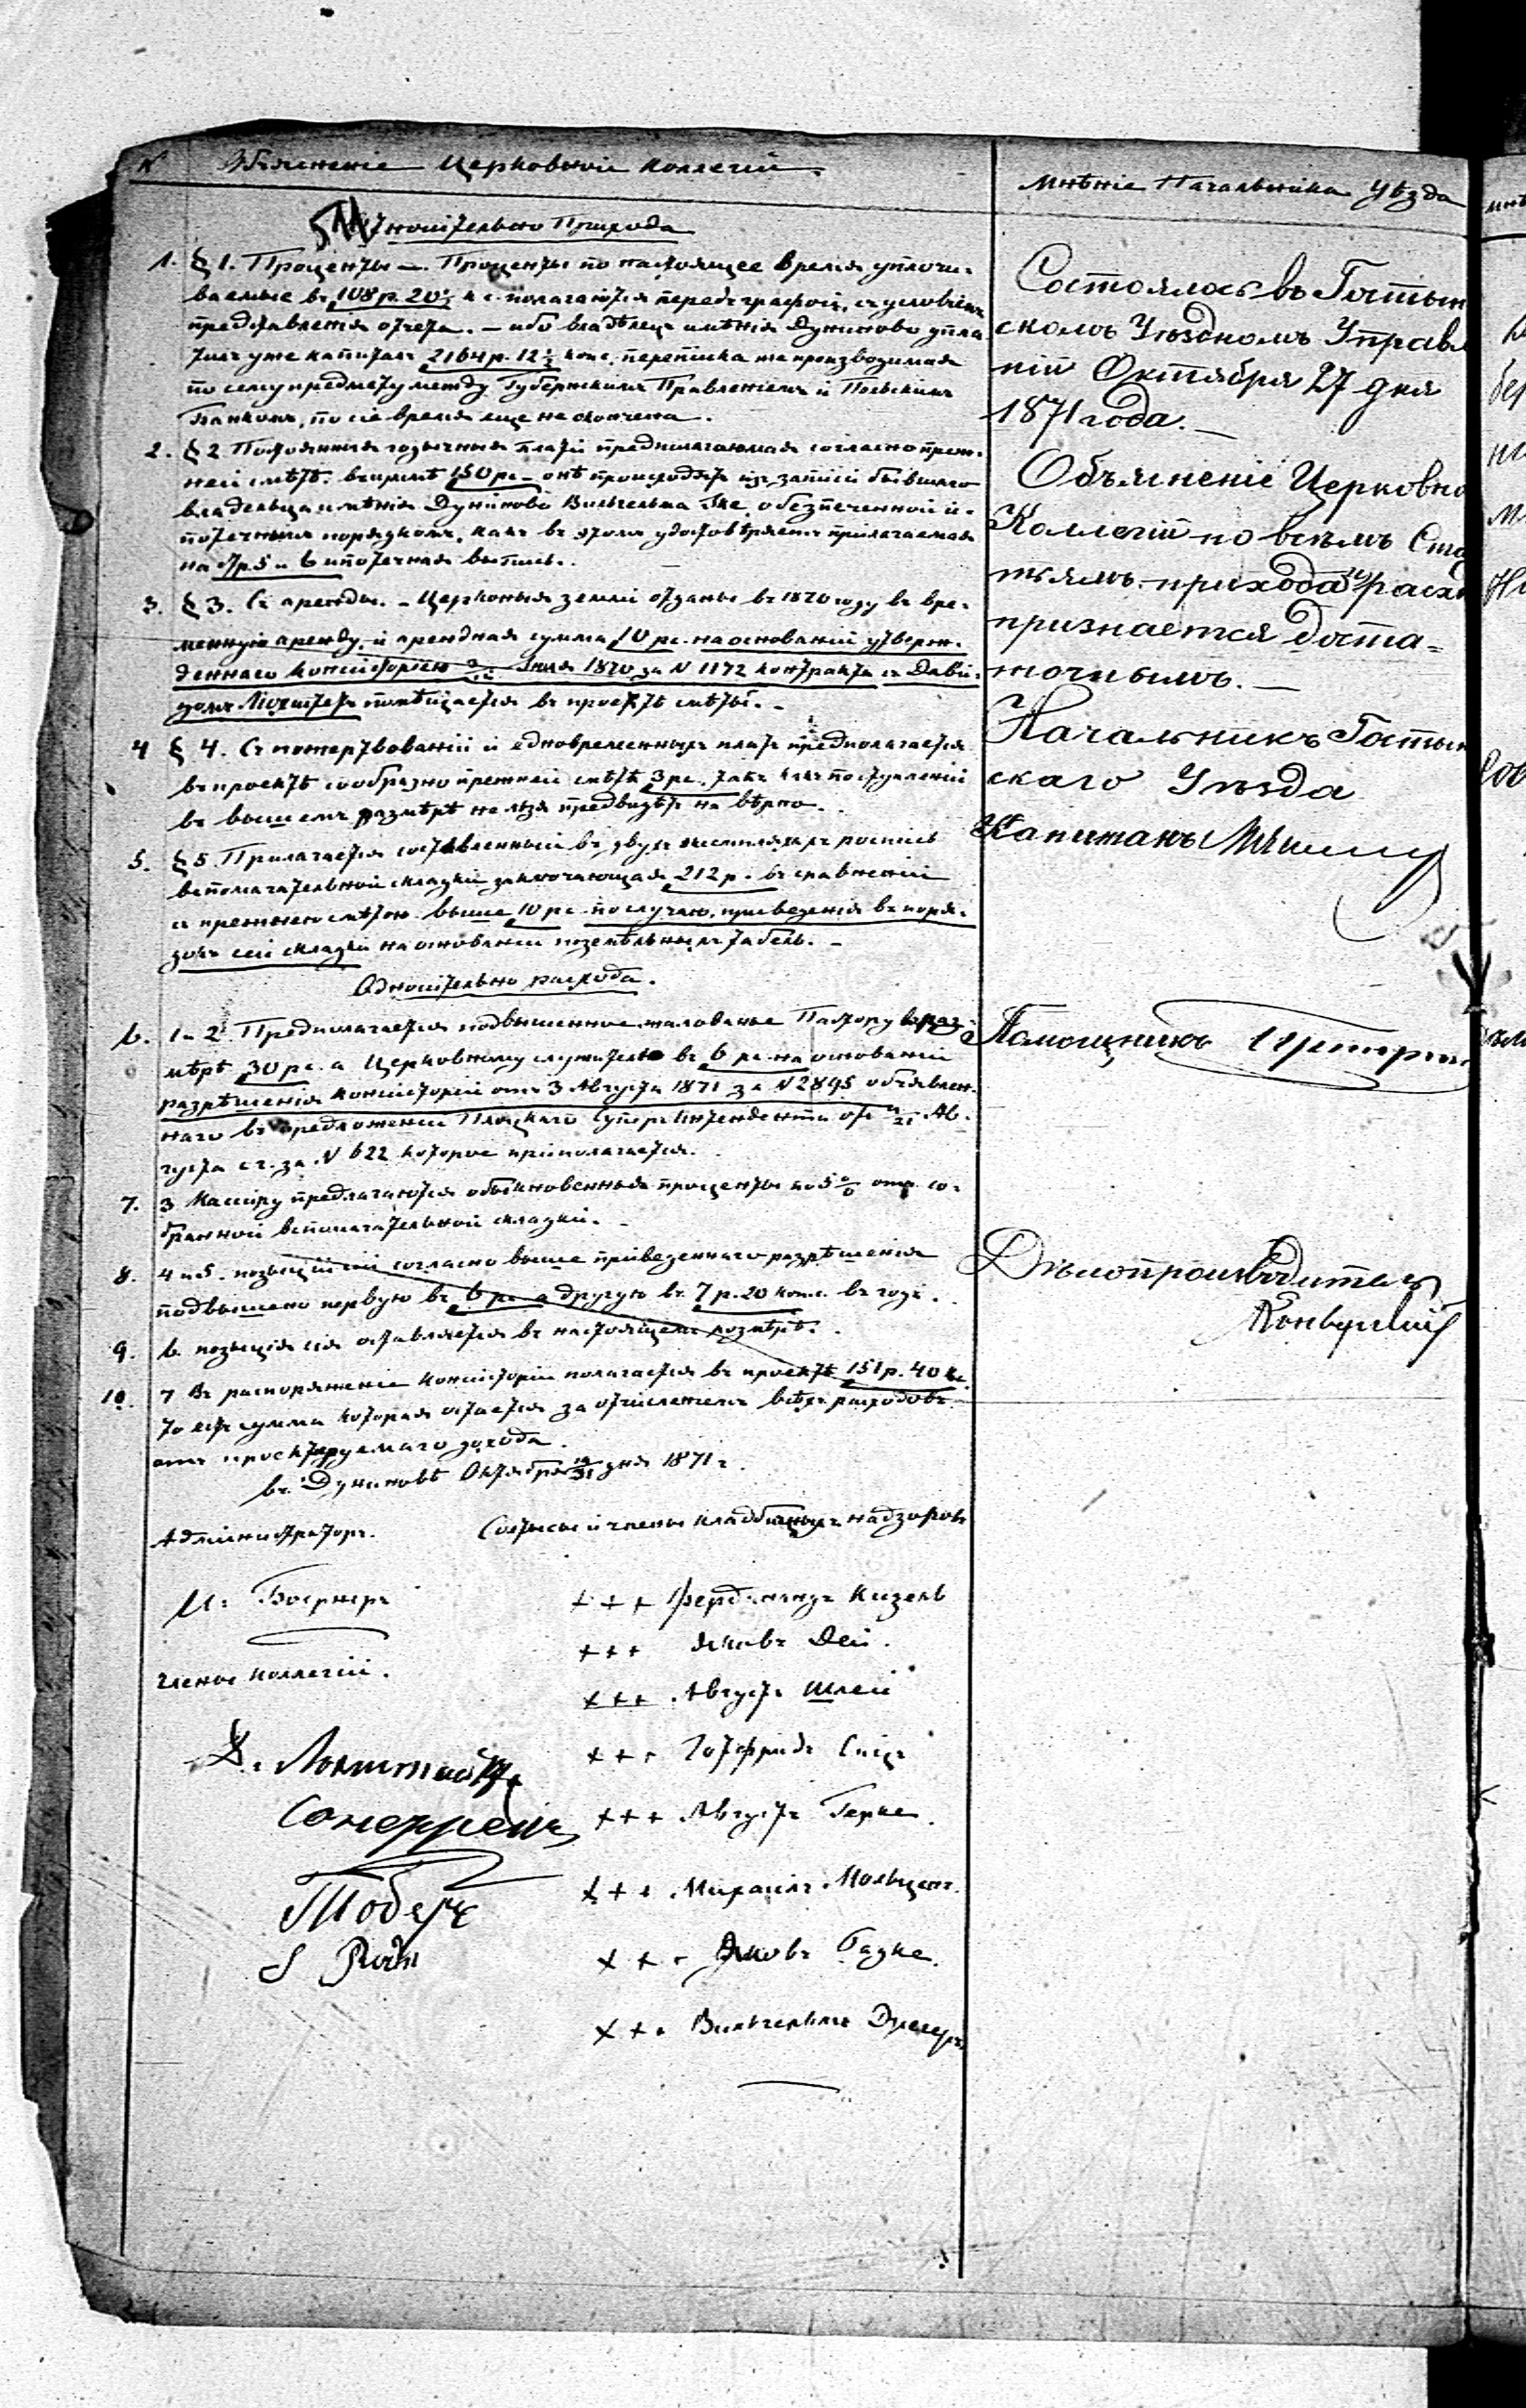 N Объясненіе Церковной Коллегіи.
Относительно Прихода
1. § 1. Проценты —. Проценты по настоящее время уплочи-
ваемые въ 108 р. 20½ к с. полагаются передъ графой, съ условіемъ
представленія отчета. — ибо владѣлецъ имѣнія Дуниново упла
тилъ уже капиталъ 2164 р. 12½ коп. переписка же производимая
по сему предмету между Губернскимъ Правленіемъ и Польскимъ
Банкомъ, по сіе время еще не окончена.
2. § 2 Постоянныя годичныя платы предполагаемая согласно преж-
ней смѣтѣ. въ суммѣ 150 рс — онѣ происходятъ изъ записи бывшаго
владельца имѣнія Дуниново Вильгельма Ике, обезпеченной и-
потечнымъ порядкомъ, какъ въ этомъ удостовѣряетъ прилагаемая
на стр. 5 и 6 ипотечная выпись.
3. § 3. Съ аренды. — Церковныя земли отданы въ 1870 году въ вре-
менную аренду, и арендная сумма 10 рс. на основаніи утверж-
деннаго Консисторіею Іюля 1870 за N 1172 контракта съ Дави-
домъ помѣщается въ проектѣ смѣты. -
4 § 4. Съ пожертвованій и единовременныхъ платъ предполагается
въ проектѣ сообразно прежней смѣтѣ 3 рс. такъ какъ поступленій
въ высшемъ размѣрѣ нельзя предвидѣть на вѣрно.
5. § 5 Прилагается составленный въ двухъ экземплярахъ роспись
вспомагательной складки заключающая 212 р. въ сравненіи
съ прежнею смѣтою выше 10 рс. по случаю, приведенія въ поря-
докъ сей складки на основаніи поземельныхъ табель. -
Относительно расхода.
6. 1 и 2. Предполагается подвышенное жалованье Пастору въ раз-
мѣрѣ 30 рс. а Церковному служителю въ 6 рс. на основаніи
разрѣшенія Консисторіи отъ 3 Августа 1871 за N 2895 объявлен-
наго въ предложеніи Плоцкаго Суперъ Интендента отъ Ав-
густа с г. за N 622 которое приполагается.
7. 3 Кассиру предлагаются обыкновенныя проценты по 5% отъ со-
бранной вспомагательной складки. -
8. 4 и 5. позыціи сіи согласно выше приведеннаго разрѣшенія
подвышено первую въ 6 рс. а другую въ 7 р. 20 коп. въ годъ.
9. 6. позыція сія оставляется въ настоящемъ размѣрѣ.
10. 7 Въ распоряженіе Консисторіи полагается въ проектѣ 151 р. 40 к.
то есть сумма которая остается за отчисленіемъ всѣхъ расходовъ
отъ проектируемаго дохода.
въ Дуниновѣ Октября 19/31 дня 1871 г.
Администраторъ. Солтысы и члены кладбищныхъ надзоровъ
И. Боернеръ
+++ Фердинандъ Кизель
+++ Яковъ Дей.
члены Коллегіи.
+++ Августъ Шлей
+++ Готфридъ Спицъ
+++ Августъ Герке
+++ Михаилъ Мольценъ.
+++ Яковъ Гадке.
+++ Вильгельмъ
Мнѣніе Начальника Уѣзда
Состоялось въ Гостын
скомъ Уѣздномъ Управле
ніи Октября 27 дня
1871 года. —
Объясненіе Церковно
Коллегіи по всѣмъ Ста
тьямъ прихода и расхо
признается доста=
точнымъ. —
Начальникъ Гостын
скаго Уѣзда
Капитанъ
Помощникъ
Дѣлопроизводитель